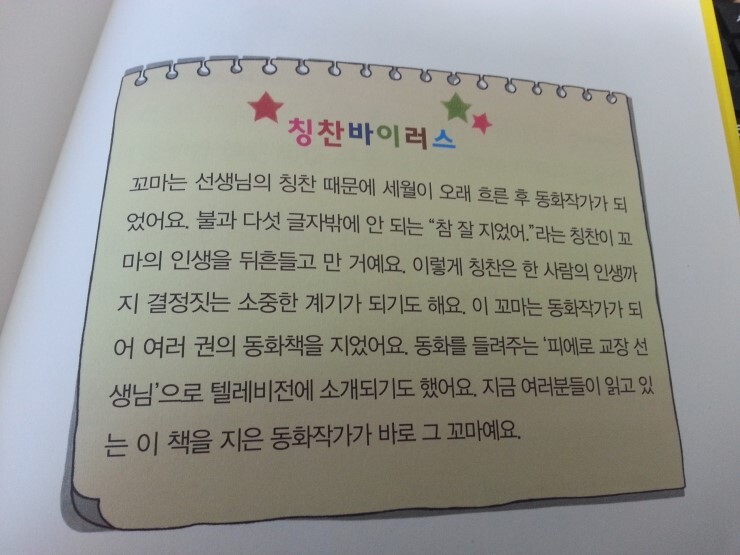 칭찬바이러스
꼬마는 선생님의 칭찬 때문에 세월이 오래 흐른 후 동화작가가 되
었어요. 불과 다섯 글자밖에 안 되는 “참 잘 지었어.”라는 칭찬이 꼬
마의 인생을 뒤흔들고 만 거예요. 이렇게 칭찬은 한 사람의 인생까
지 결정짓는 소중한 계기가 되기도 해요. 이 꼬마는 동화작가가 되
어 여러 권의 동화책을 지었어요. 동화를 들려주는 ‘피에로 교장 선
생님’으로 텔레비전에 소개되기도 했어요. 지금 여러분들이 읽고 있
는 이 책을 지은 동화작가가 바로 그 꼬마예요.